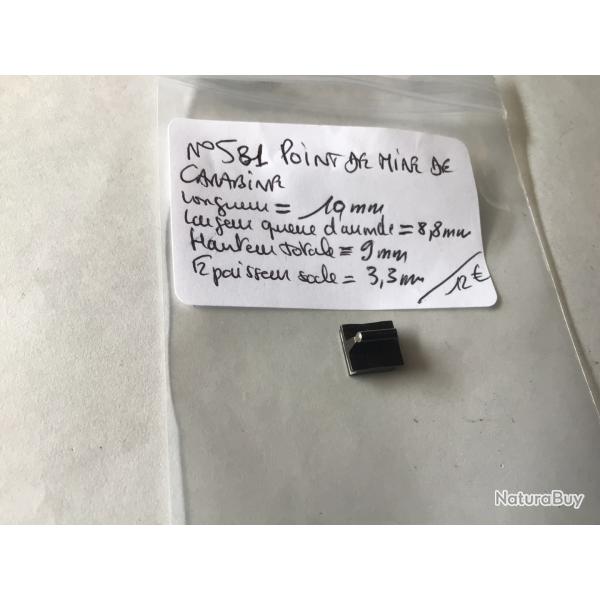 N°5B1 POINT DE MIRE DE
CARABINE
Longueur = 10 mm
Largeur queue d'aronde = 8,8mm
Hauteur totale = 9mm
Epaisseur socle = 3,3mm
12€
NaturaBuy